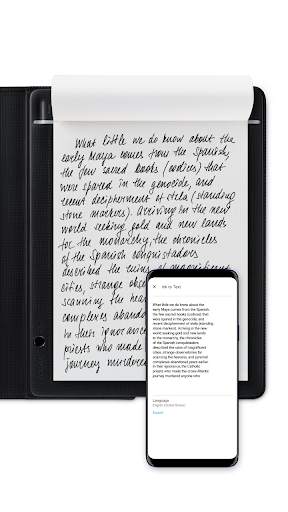 What little we do know about the
early Maya comes from the Spanish,
the few sacred books (codices) that
were spared in the genocide, and
recent decipherment of stela (standing
stone markers). Arriving in the new
world seeking gold and new lands
for the monarchy, the chronicles
of the Spanish conquistadors
described the ruins of magnificent
cities, strange obse
scanning the hea
complexes aband
in their ignoran
priests who mad
journey murdere
Ink to Text
What little we do know about the
early Maya comes from the Spanish,
the few sacred books (codices) that
were spared in the genocide, and
recent decipherment of stela (standing
stone markers). Arriving in the new
world seeking gold and new lands
for the monarchy, the chronicles
of the Spanish conquistadors
described the ruins of magnificent
cities, strange observatories for
scanning the heavens, and pyramid
complexes abandoned years earlier.
in their ignorance, the Catholic
priests who made the cross-Atlantic
journey murdered anyone who
Language
English (United States)
Export